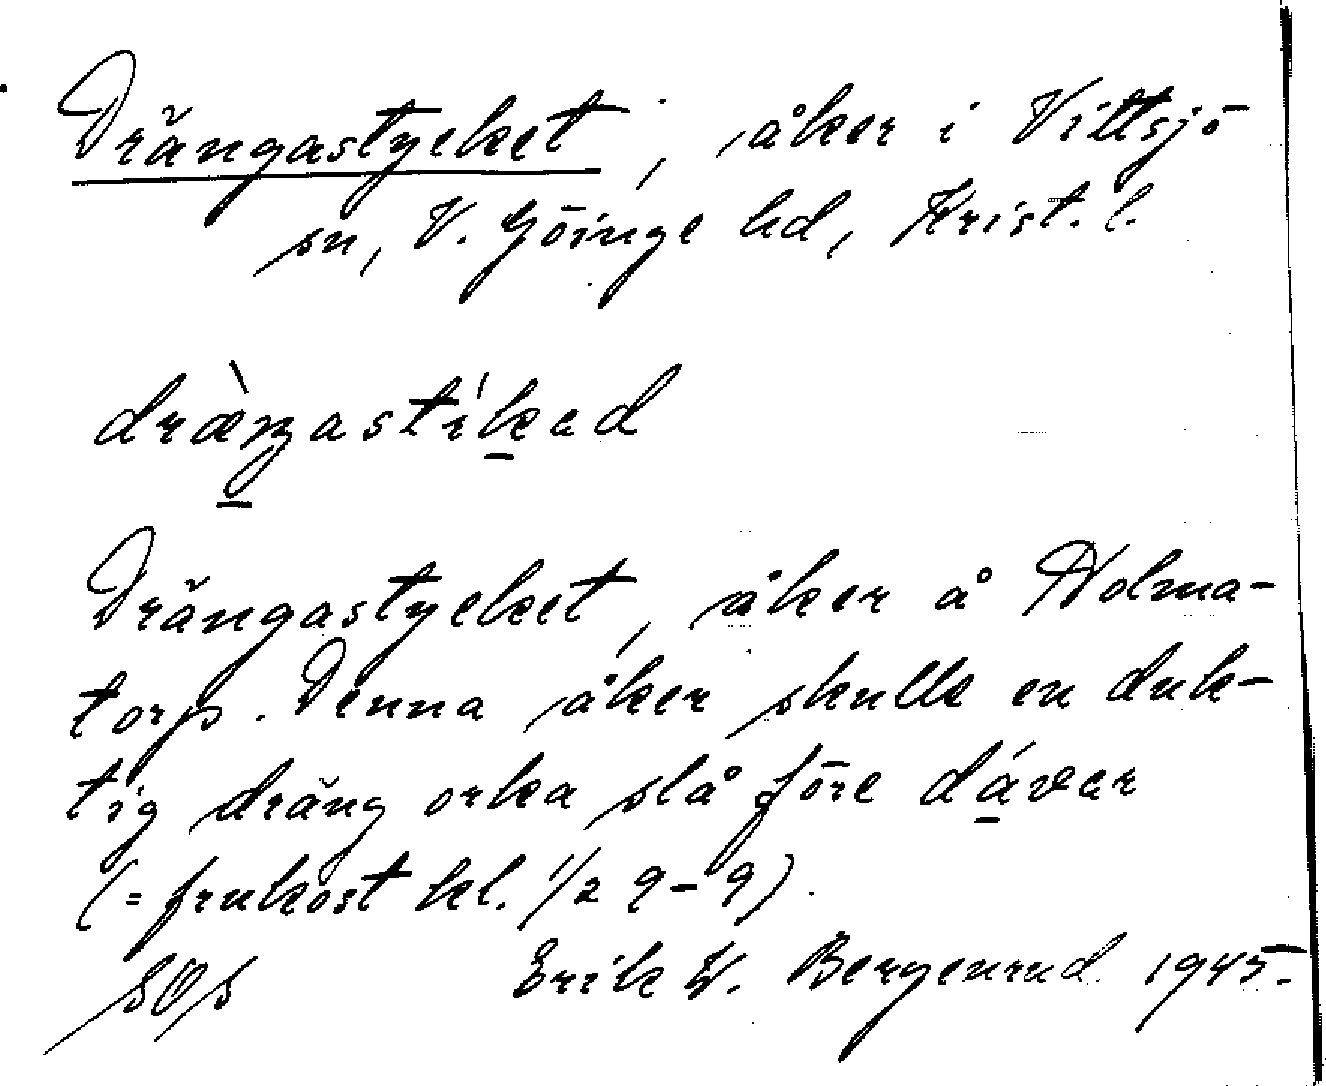 Drängastycket, åker i Vittsjö
sn, V. Göinge hd, Krist. l.
dræ̀ŋastíkad
Drängastycket, åker å Holma-
torp. Denna åker skulle en duk-
tig dräng orka slå före dávar
(= frukost kl. 1/2 9-9)
SOs Erik W. Bergenrud 1945.